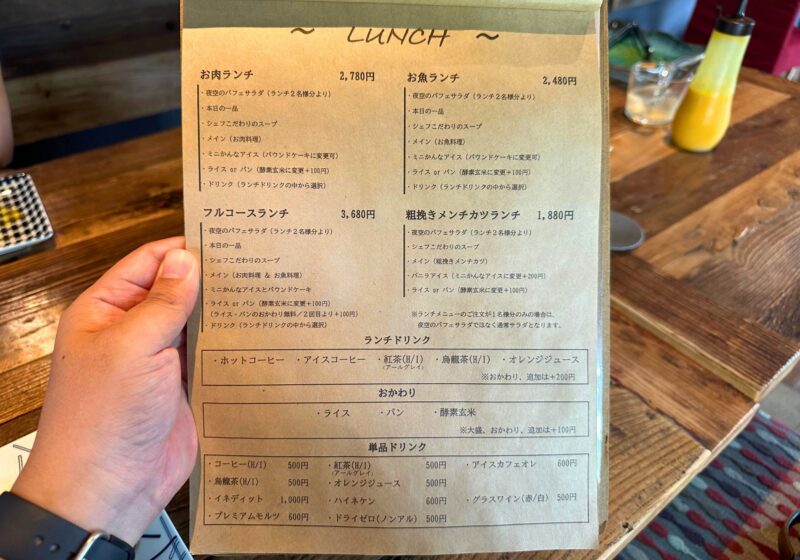 ～ LUNCH ～
お肉ランチ 2,780円
・夜空のパフェサラダ（ランチ２名様分より）
・本日の一品
・シェフこだわりのスープ
・メイン（お肉料理）
・ミニかんなアイス（パウンドケーキに変更可）
・ライス or パン（酵素玄米に変更＋100円）
・ドリンク（ランチドリンクの中から選択）
お魚ランチ 2,480円
・夜空のパフェサラダ（ランチ２名様分より）
・本日の一品
・シェフこだわりのスープ
・メイン（お魚料理）
・ミニかんなアイス（パウンドケーキに変更可）
・ライス or パン（酵素玄米に変更＋100円）
・ドリンク（ランチドリンクの中から選択）
フルコースランチ 3,680円
・夜空のパフェサラダ（ランチ２名様分より）
・本日の一品
・シェフこだわりのスープ
・メイン（お肉料理 ＆ お魚料理）
・ミニかんなアイスとパウンドケーキ
・ライス or パン（酵素玄米に変更＋100円）
（ライス・パンのおかわり無料／２回目より＋100円）
・ドリンク（ランチドリンクの中から選択）
粗挽きメンチカツランチ 1,880円
・夜空のパフェサラダ（ランチ２名様分より）
・シェフこだわりのスープ
・メイン（粗挽きメンチカツ）
・バニラアイス（ミニかんなアイスに変更＋200円）
・ライス or パン（酵素玄米に変更＋100円）
※ランチメニューのご注文が１名様分のみの場合は、
夜空のパフェサラダではなく通常サラダとなります。
ランチドリンク
・ホットコーヒー ・アイスコーヒー ・紅茶(H/I) ・烏龍茶(H/I) ・オレンジジュース
(アールグレイ)
※おかわり、追加は＋200円
おかわり
・ライス ・パン ・酵素玄米
※大盛、おかわり、追加は＋100円
単品ドリンク
・コーヒー(H/I) 500円 ・紅茶(H/I) 500円 ・アイスカフェオレ 600円
(アールグレイ)
・烏龍茶(H/I) 500円 ・オレンジジュース 500円
・イネディット 1,000円 ・ハイネケン 600円 ・グラスワイン(赤/白) 500円
・プレミアムモルツ 600円 ・ドライゼロ(ノンアル) 500円